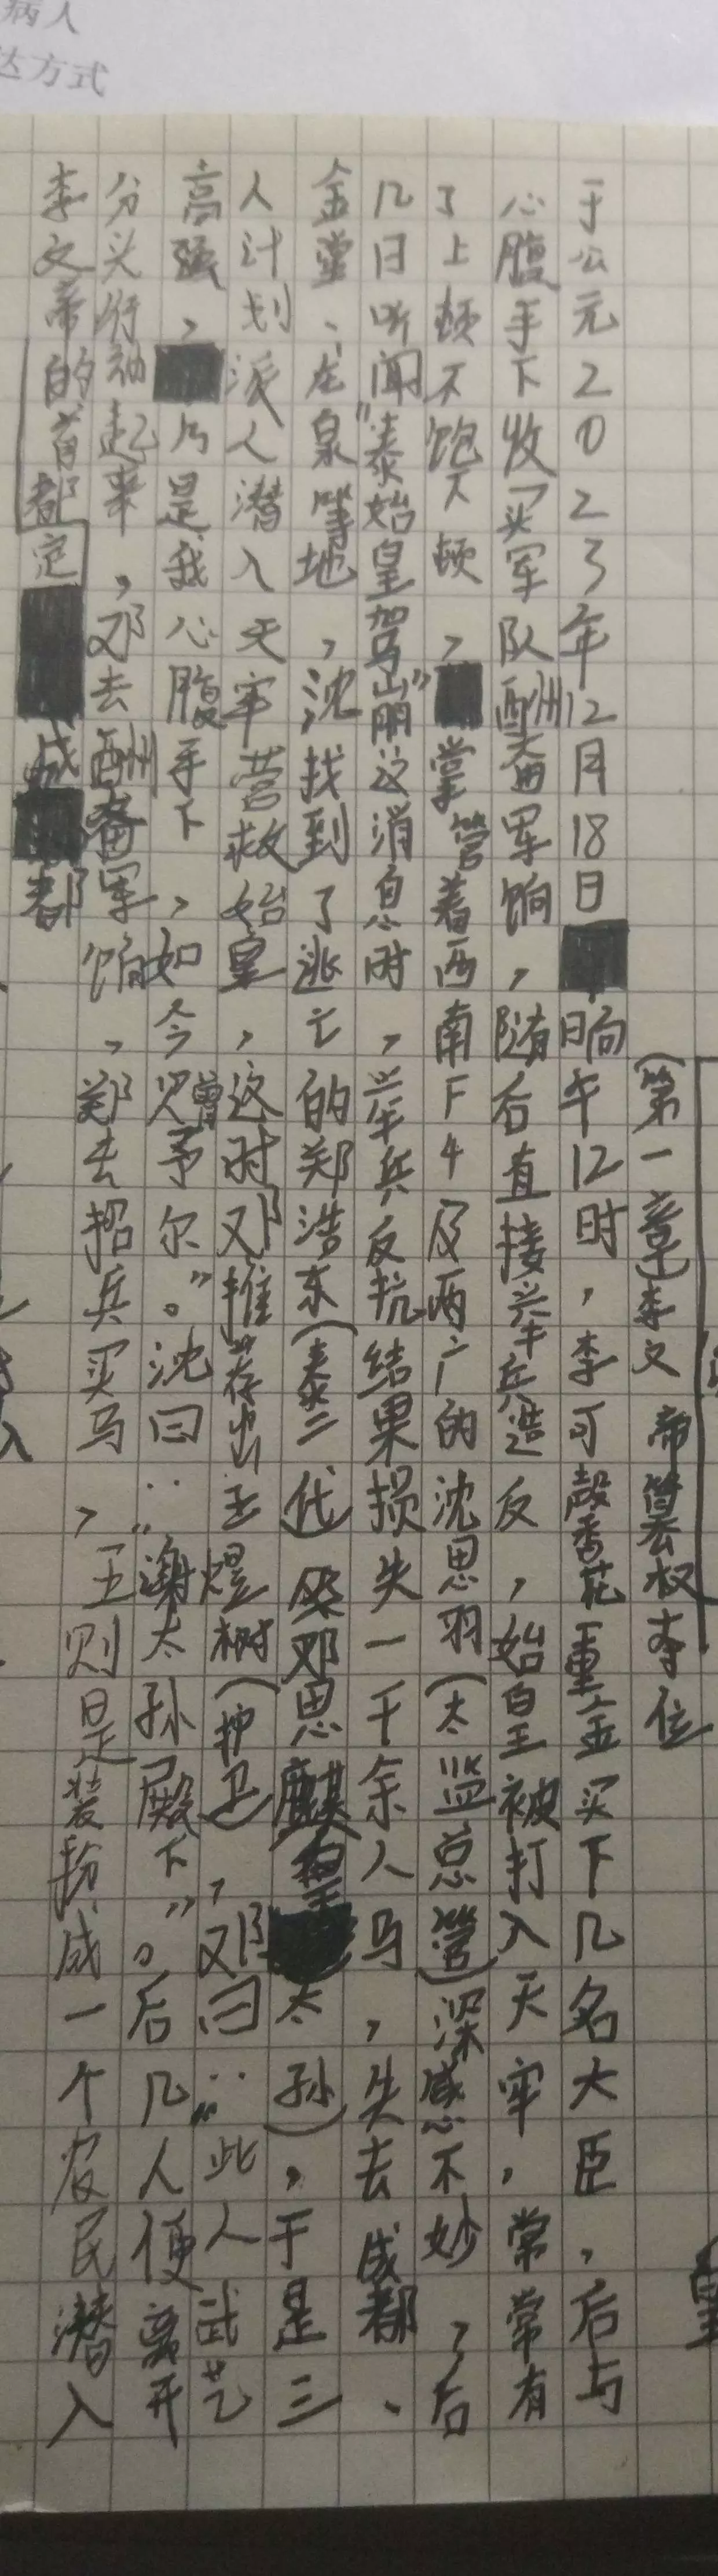 病人
达方式
（第一章）李文帝篡权夺位
于公元2023年12月18日晌午12时，李可馨花重金买下几名大臣，后与
心腹手下收买军队酬畜军饷，随后直接举兵造反，始皇被打入天牢，常常有
了上顿不饱下顿，掌管着西南下4及两广的沈思羽（太监总管）深感不妙，后
几日听闻“泰始皇驾崩”这消息时，举兵反抗结果损失一千余人马，失去成都、
金堂、龙泉等地，沈找到了逃亡的郑浩东（泰二代）及邓思麒（皇太孙），于是三
人计划派人潜入天牢营救始皇，这时邓推荐出王煜树（护卫），邓曰：“此人武艺
高强，乃是我心腹手下，如今赠予尔。”沈曰：“谢太孙殿下”。后几人便离开
分头行动起来，邓去酬畜军饷，郑去招兵买马，王则是装扮成一个农民潜入
李文帝的首都定成都